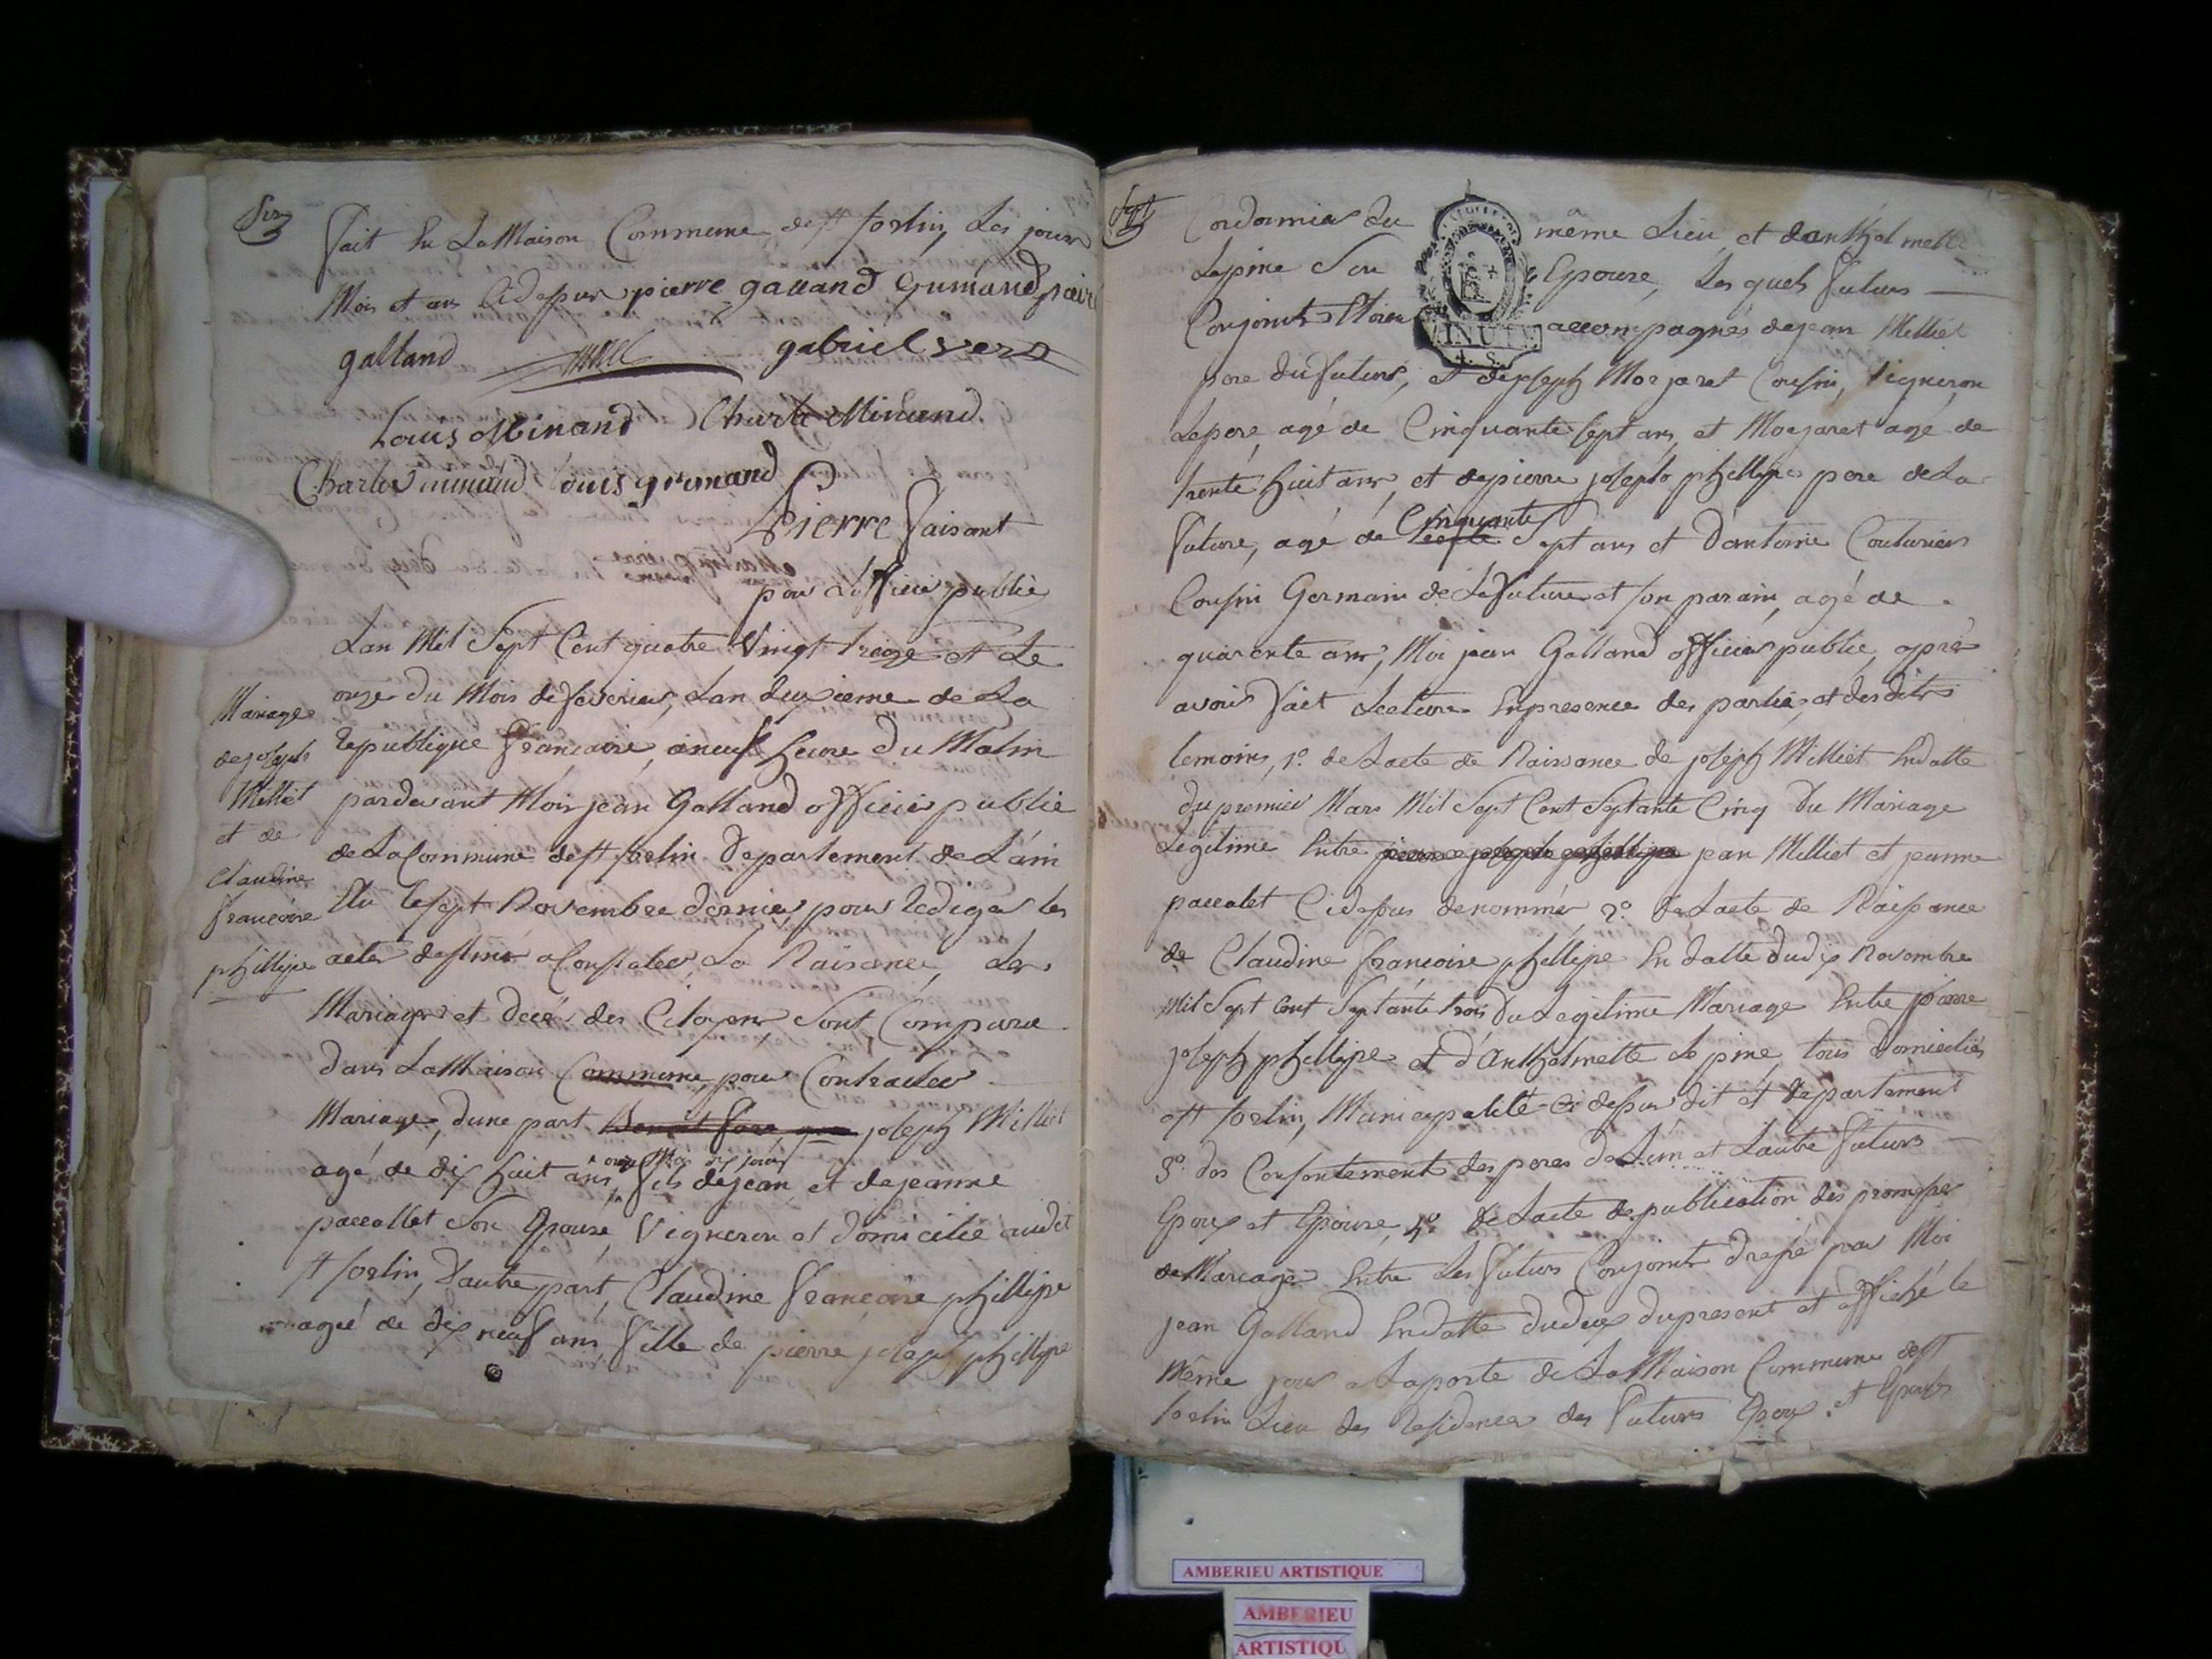 Six
fait En La Maison Commune de st sorlin, Les jour
Mois et an Cidessus pierre galland gumand peire
galland gabriel vezo
Louis Minand Charle Minand
Charles gumand Louis gumand
Pierre faisant
pour Lofficiè publie
Lan Mil Sept Cent quatre Vingt treize et Le
onze du Mois de feverier, Lan deuxieme de La
Republique francaise, a neuf heure du Matin
pardevant Moi jean Galland officier publie
de La Commune de st sorlin Departement de L'ain
Elu le sept Novembre dernier, pour Rediger les
actes destiné a Constater La Naisance, Les
Mariages et decés des Citoyens Sont Comparu
dans La Maison Commune, pour Contracter
Mariage, dune part joseph Milliet
agé de dix huit ans onze Mois dix jours fils de jean et de jeanne
paccallet Son Epouse, Vigneron et domicilié audit
st sorlin, D'autre part, Claudine francoise phillipe
ageé de dix neuf ans fille de pierre joseph phillipe
Mariage
de joseph
Milliet
et de
Claudine
francoise
phillipe
Sept
Cordonnier du même Lieu, et danthelmette
Lepine Son Epouse, Les quels futurs
Conjoints Etoient accompagnés de jean Milliet
MINUTE
4. S.
pere du futur, et de joseph Morjaret Cousin, Vigneron
Le pere agé de Cinquante sept ans, et Morjaret agé de
trente huit ans, et de pierre joseph phillipe pere de La
future, agé de Cinquante Sept ans et D'antoine Couturier
Cousin Germain de La future et son parain, agé de
quarente ans, Moi jean Galland officier publie, aprés
avoir fait Lecture En presence des parties, et des dits
temoins, 1º de Lacte de Naissance de joseph Milliet En datte
du premier Mars Mil Sept Cent Septante Cinq du Mariage
Légitime Entre jean Milliet et jeanne
paccalet Cidessus denommés 2º De Lacte de Naissance
de Claudine francoise phillipe En datte du dix Novembre
Mil Sept Cent Septante trois Du Legitime Mariage Entre pierre
joseph phillipe et d'Anthelmette Lepine, tous domiciliés
st sorlin, Municipalité ci dessus dit et departement
3º des Consentement des peres de L'un et Lautre futurs
Epoux et Epouse, 4º De Lacte de publication des promesses
de Mariage Entre Les futurs Conjoints dressé par Moi
jean Galland En datte du deux du present et affiché le
Même jour a La porte de La Maison Commune de st
sorlin Lieu des Residences des futurs Epoux et Epouses
AMBERIEU ARTISTIQUE
AMBERIEU
ARTISTIQU